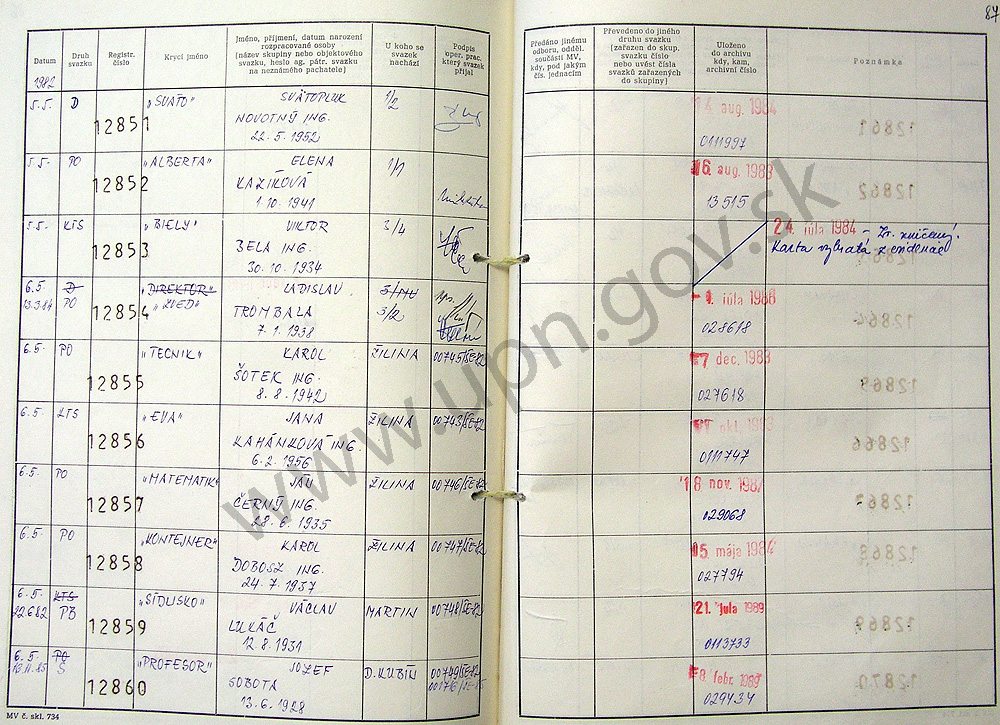 87
Datum
Druh svazku
Registr. číslo
Krycí jméno
Jméno, příjmení, datum narození
rozpracované osoby
(název skupiny nebo objektového
svazku, heslo ag. pátr. svazku
na neznámého pachatele)
U koho se
svazek
nachází
Podpis
oper. prac.
který svazek
přijal
Předáno jinému
odboru, odděl.
součásti MV,
kdy, pod jakým
čís. jednacím
Převedeno do jiného
druhu svazku
(zařazen do skup.
svazku číslo
nebo uvést čísla
svazků zařazených
do skupiny)
Uloženo
do archivu
kdy, kam,
archivní číslo
Poznámka
1982
5.5. D 12851 "SVAŤO" SVÄTOPLUK 1/2
NOVOTNÝ ING.
22. 5. 1952
aug. 1984
0111997
5.5. PO 12852 "ALBERTA" ELENA 1/1
KAZÍKOVÁ
1. 10. 1941
16. aug. 1983
13515
5.5. KTS 12853 "BIELY" VIKTOR 3/4
BELA ING.
30. 10. 1934
24. júla 1984 – Zv. zničený!
Karta vybratá z evidencie
6.5. D 12854 "DIREKTOR" LADISLAV
13.3.84 PO "ZVED" TROMBALA 3/2
7. 1. 1938
1. júla 1988
028618
6.5. PO 12855 "TECNIK" KAROL ŽILINA 00745/ŠE-82
ŠOTEK ING.
8. 8. 1942
7 dec. 1983
027618
6.5. KTS 12856 "EVA" JANA ŽILINA 00743/ŠE-82
KAHÁNKOVÁ ING.
6. 2. 1956
0111747
6.5. PO 12857 "MATEMATIK" JÁN ŽILINA 00746/ŠE-82
ČERNÝ ING.
28. 6. 1935
18. nov. 1987
029068
6.5. PO 12858 "KONTEJNER" KAROL ŽILINA 00747/ŠE-82
DOBOSZ ING.
24. 7. 1937
15. mája 1984
027794
6.5. KTS 12859 "SÍDLISKO" VÁCLAV MARTIN 00748/ŠE-82
22.6.82 PB LUKÁČ
12. 8. 1931
21. júla 1989
0113733
6.5. PO 12860 "PROFESOR" JOZEF D. KUBÍN 00749/ŠE-82
S SOBOTA
13. 6. 1928
8. febr. 1989
029434
MV č. skl. 734
www.upn.gov.sk